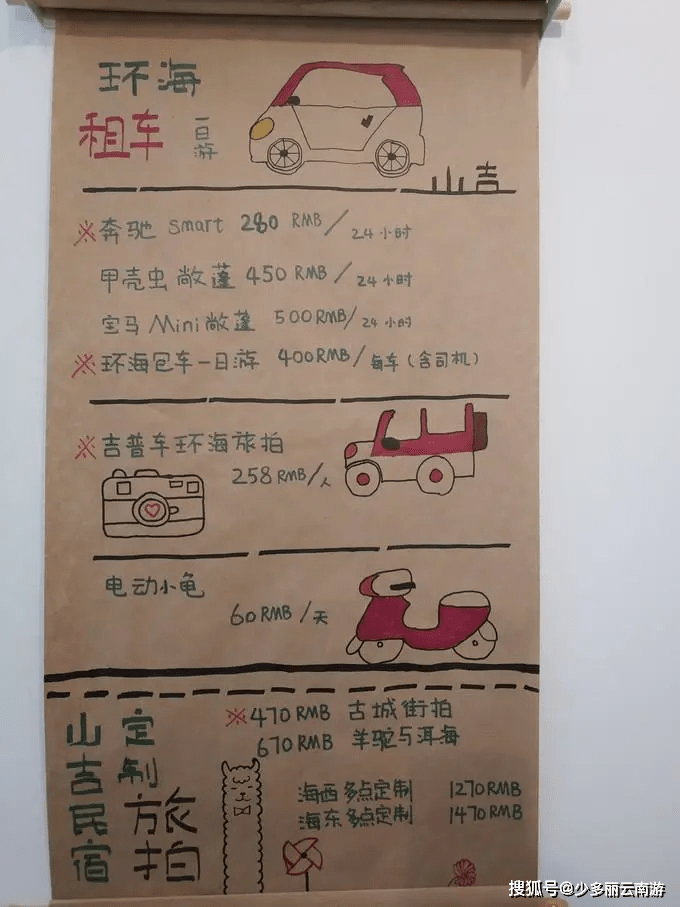 环海
租车 一日游
山吉
※奔驰 smart 280 RMB/24小时
甲壳虫敞蓬 450 RMB/24小时
宝马Mini敞蓬 500RMB/24小时
※环海包车一日游 400RMB/每车(含司机)
※吉普车环海旅拍
258RMB/人
电动小龟
60RMB/天
山吉民宿
定制
旅拍
※470RMB 古城街拍
670RMB 羊驼与洱海
海西多点定制 1270RMB
海东多点定制 1470RMB
搜狐号@少多丽云南游